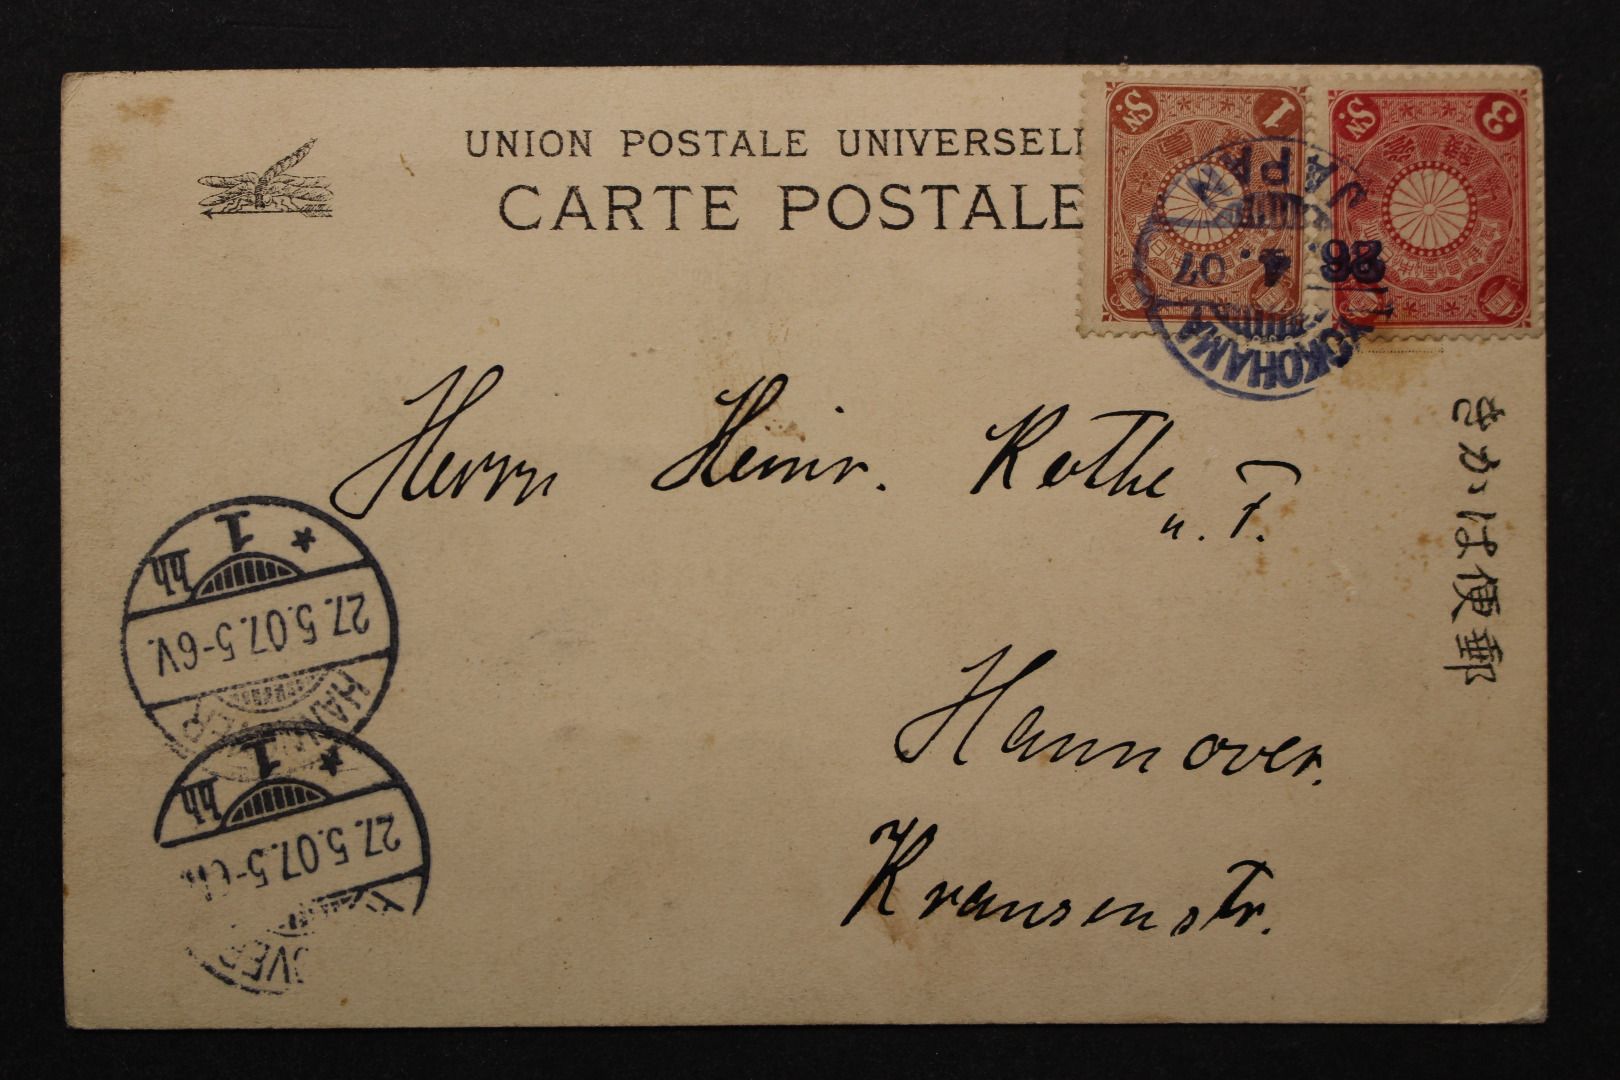 UNION POSTALE UNIVERSELL
CARTE POSTALE
1 Sn.
3 Sn.
YOKOHAMA
26. 4. 07
JAPAN
郵便はがき
Herrn Heinr. Rothe
u. F.
Hannover.
Kransenstr.
HANNOVER
27. 5. 07. 5-6V.
* 1 hh
HANNOVER
27. 5. 07. 5-6V.
* 1 hh